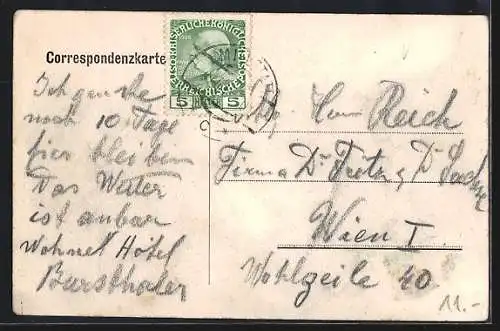 Correspondenzkarte
KAISERLICHE KÖNIGLICHE
ÖSTERREICHISCHE
5 5
Ich
noch 10 Tage
hier bleiben
Das Wetter
ist
Wohne Hôtel
Bursthaler
Herrn Reich
Firma Dr Fritz & Dr Sachs
Wien I
Wohlzeile 40
11.-